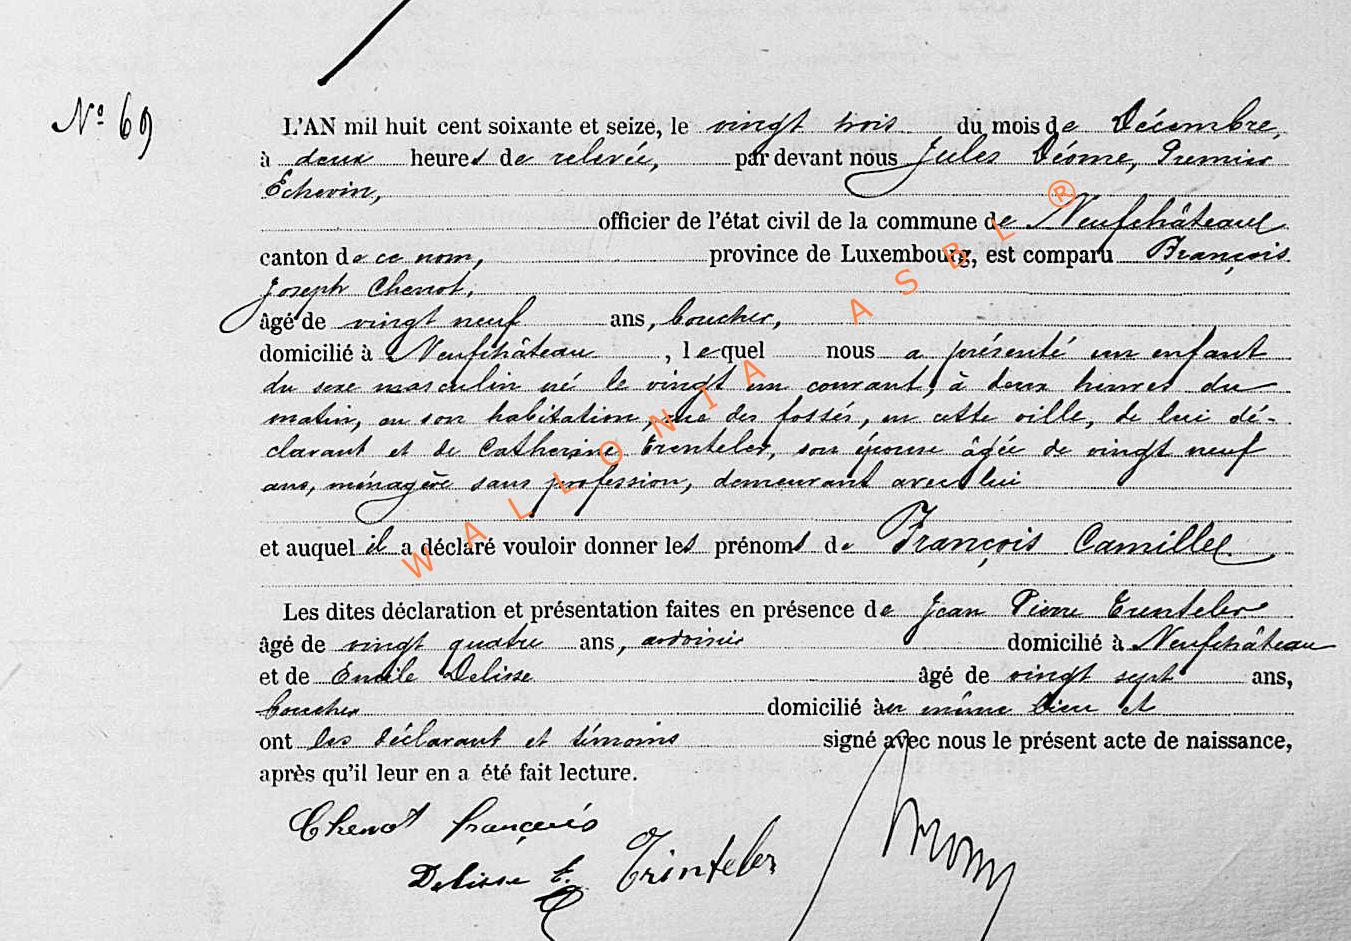 N° 69
L'AN mil huit cent soixante et seize, le vingt trois du mois de Décembre,
à deux heures de relevée, par devant nous Jules Déome, Premier
Echevin,
officier de l'état civil de la commune de Neufchâteau
canton de ce nom, province de Luxembourg, est comparu François
Joseph Chenot,
âgé de vingt neuf ans, boucher,
domicilié à Neufchâteau, lequel nous a présenté un enfant
du sexe masculin né le vingt un courant, à deux heures du
matin, en son habitation, rue des fossés, en cette ville, de lui dé-
clarant et de Catherine Trenteler, son épouse âgée de vingt neuf
ans, ménagère sans profession, demeurant avec lui
et auquel il a déclaré vouloir donner les prénoms de François Camille
Les dites déclaration et présentation faites en présence de Jean Pierre Trenteler
âgé de vingt quatre ans, ardoisier domicilié à Neufchâteau
et de Emile Delisse âgé de vingt sept ans,
boucher domicilié au même lieu et
ont les déclarant et témoins signé avec nous le présent acte de naissance,
après qu'il leur en a été fait lecture.
Chenot françois
Delisse E. Trinteler
WALLONIA ASBL ®